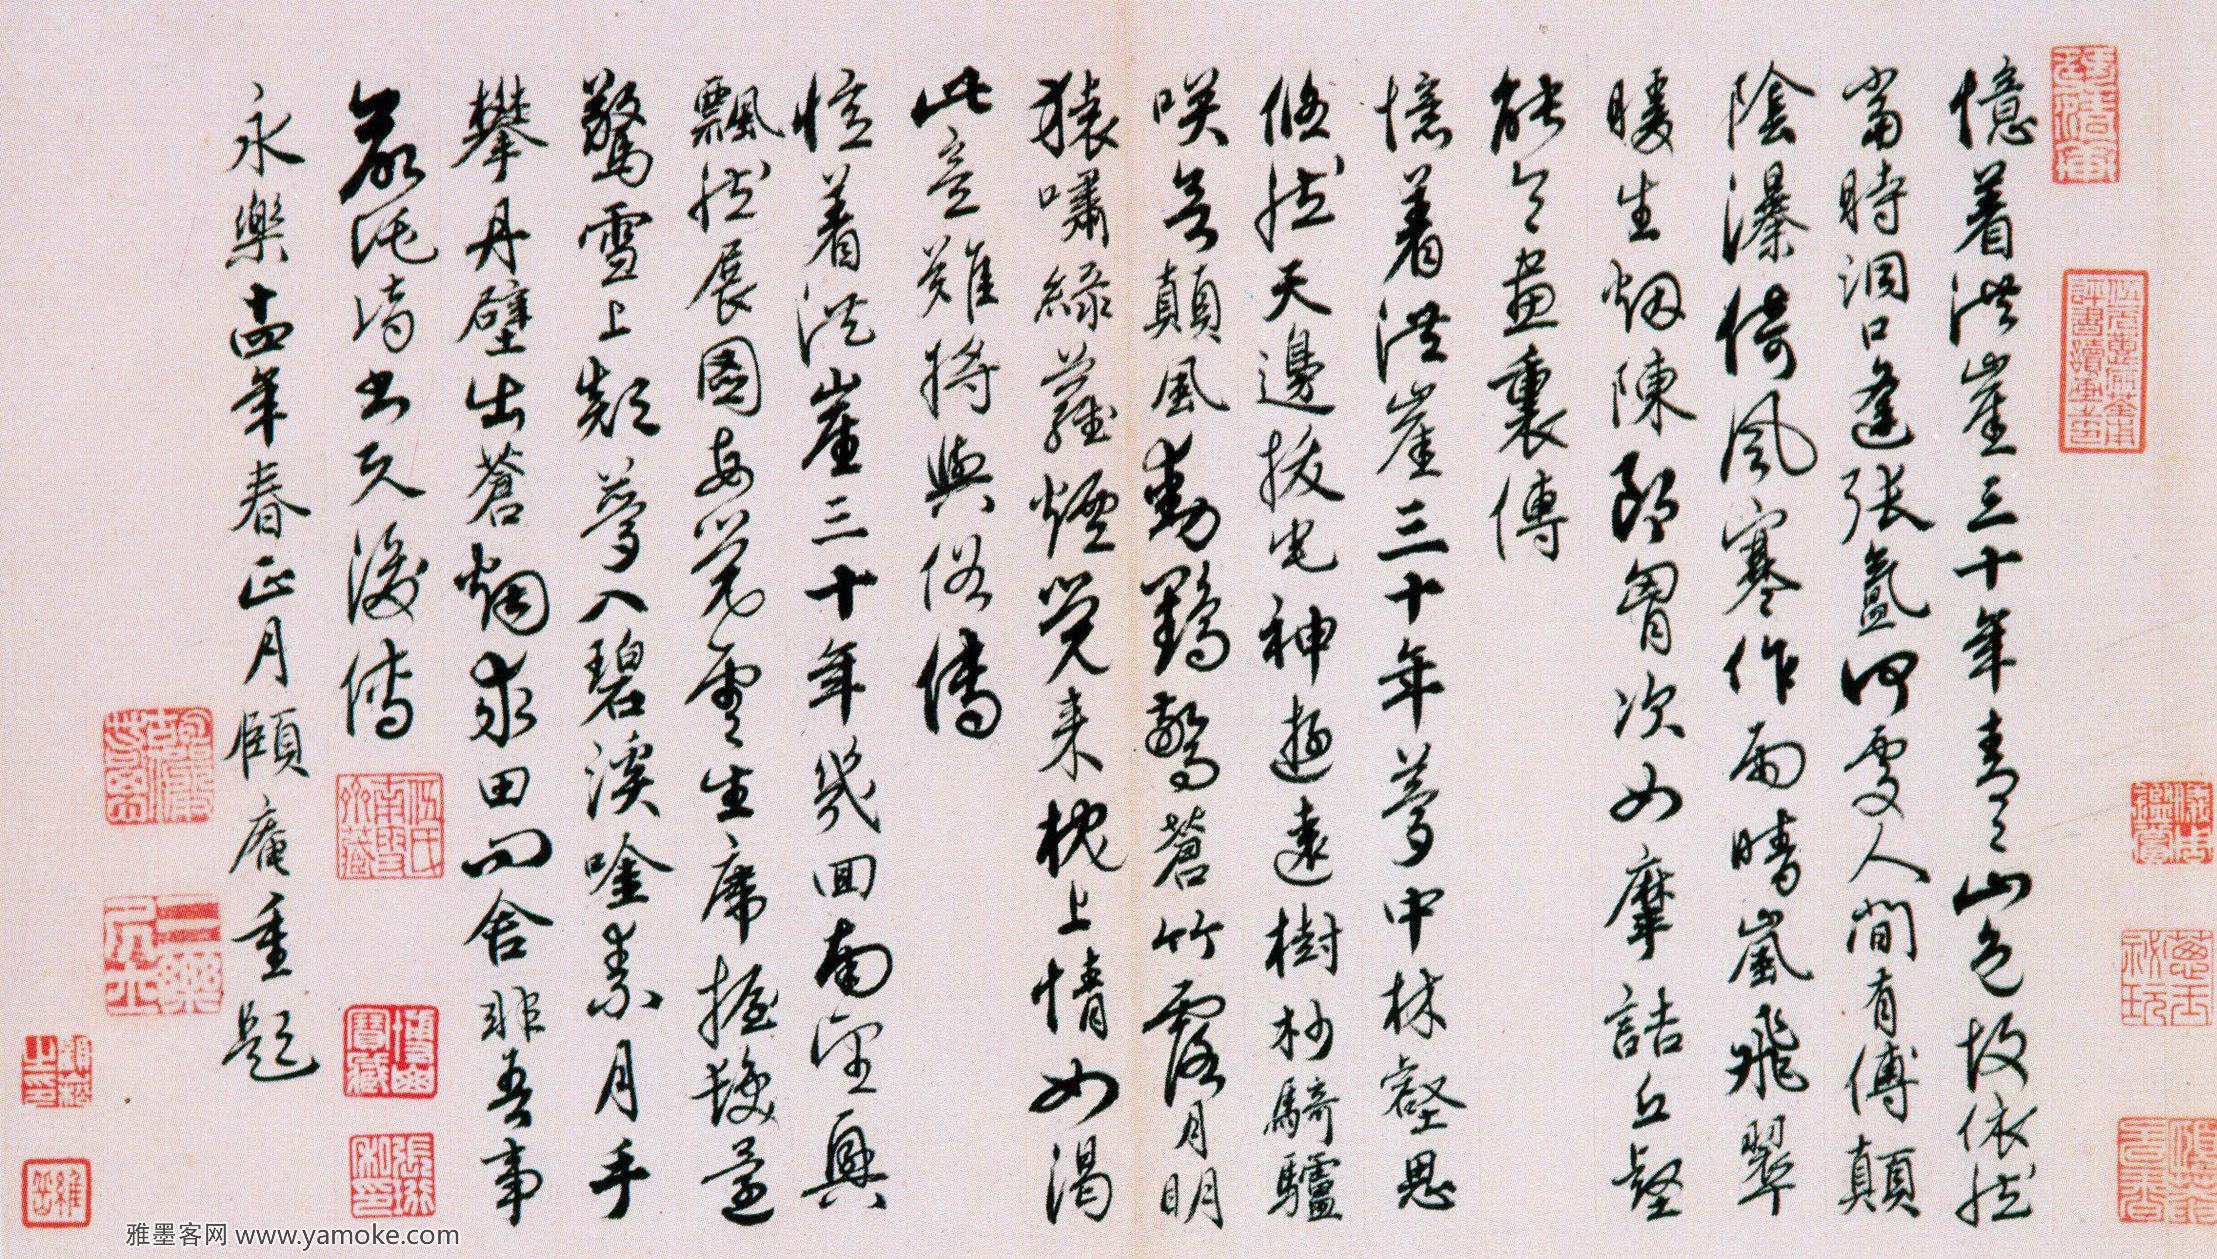 憶着洪崖三十年青々山色故依然
當時洞口逢張氳何處人間有傅顛
陰瀑倚風寒作雨晴嵐飛翠
暖生烟陳郎胸次如摩詰丘壑
能令畫裏傳
憶着洪崖三十年夢中林壑思
悠然天邊拔宅神遊遠樹杪騎驢
咲客顛風動鸛驚蒼竹露月明
猿嘯綠蘿煙覺来枕上情如渴
此意難將與俗傳
憶着洪崖三十年幾回南望興
飄然展圖每覺雲生席握髮還
驚雪上顛夢入碧溪唫素月手
攀丹壁出蒼烟求田問舍非吾事
永樂十四年春正月頤庵重題
伍氏南雪齋藏
雅墨客网 www.yamoke.com